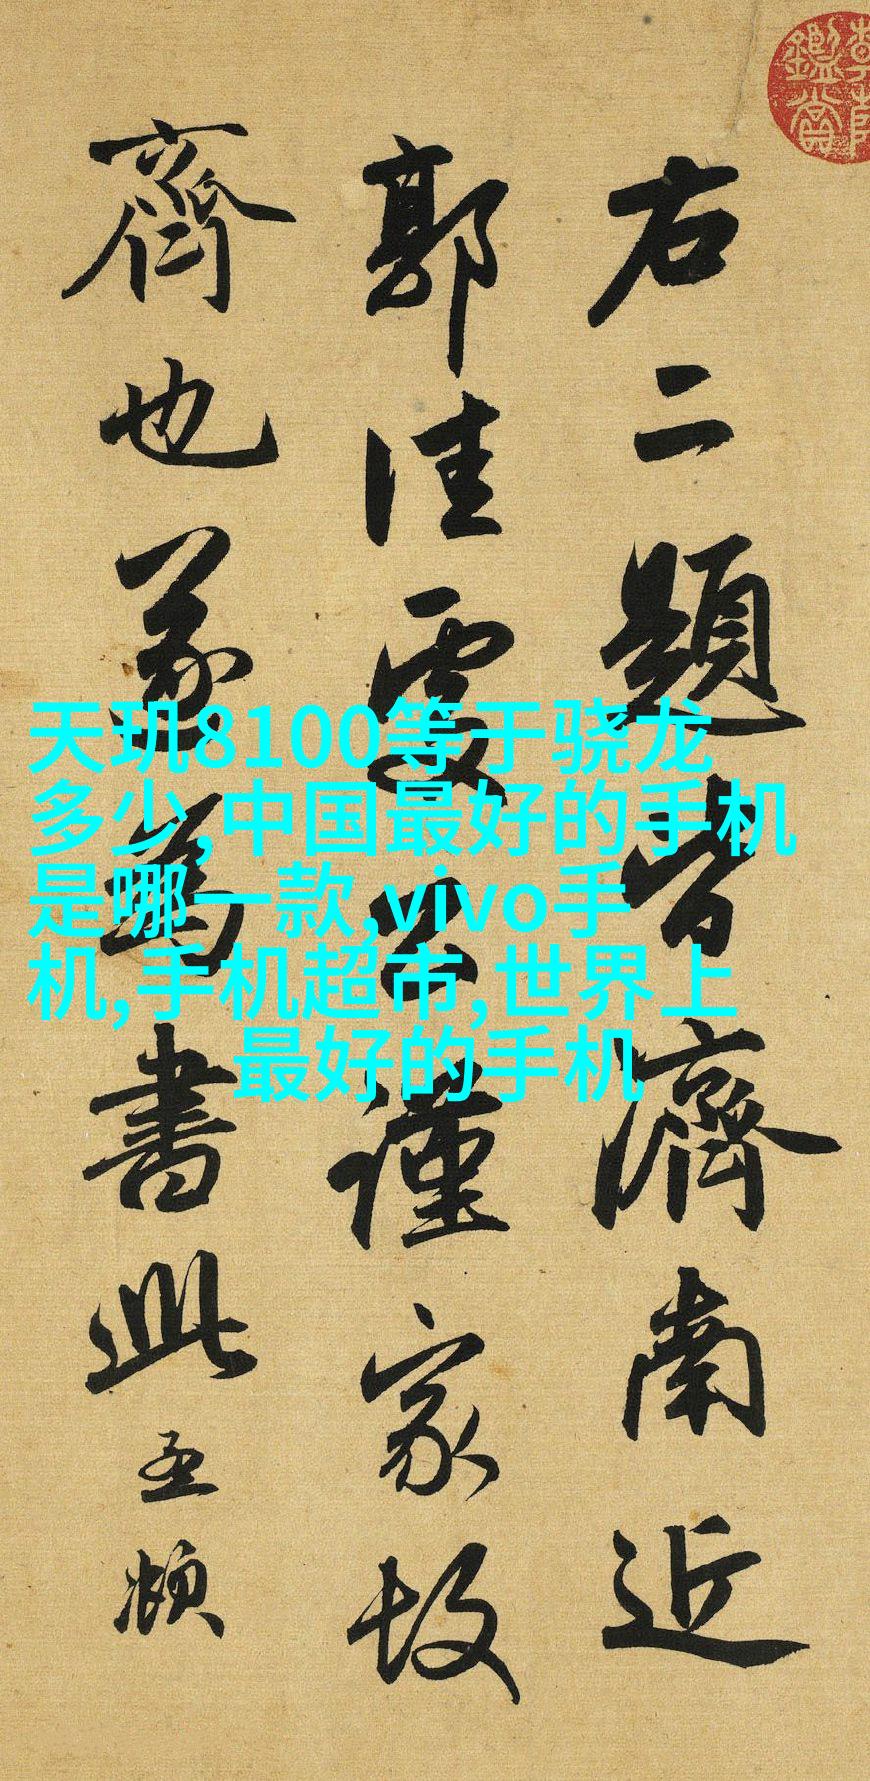 右二題皆濟南近
郭佳處公謹家故
齊也遂為書此孟頫
天玑8100等于骁龙
多少,中国最好的手机
是哪一款,vivo手
机,手机超市,世界上
最好的手机
鑑賞